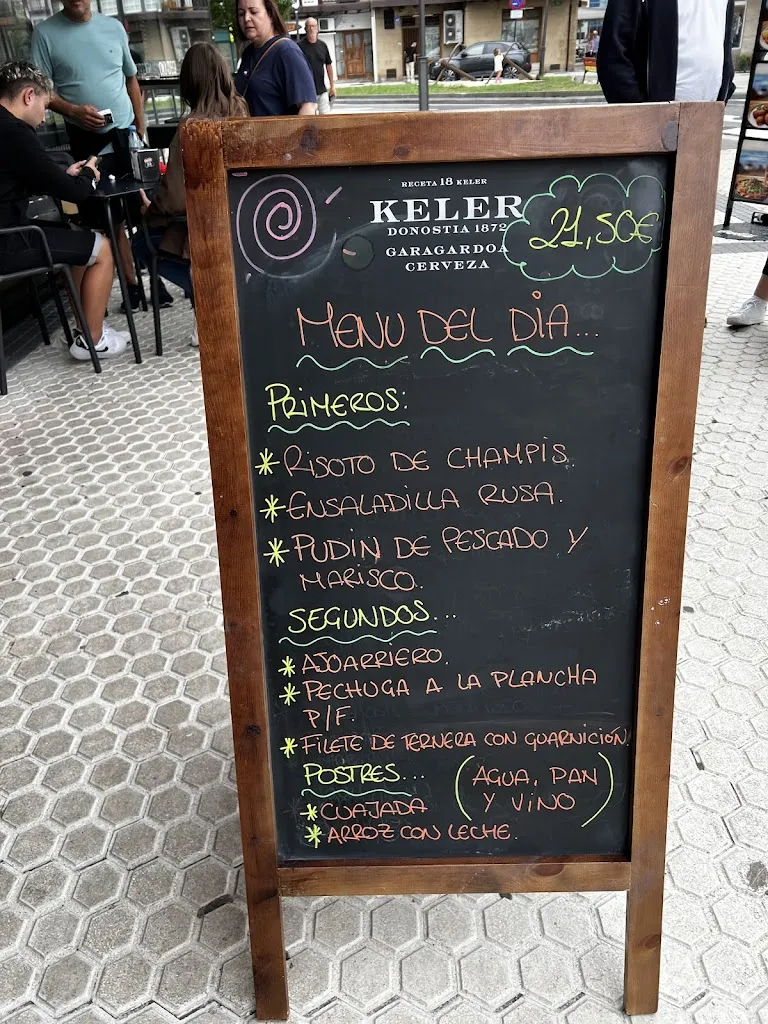 RECETA 18 KELER
KELER
DONOSTIA 1872
GARAGARDOA
CERVEZA
21,50€
MENU DEL DIA...
PRIMEROS:
* RISOTO DE CHAMPIS.
* ENSALADILLA RUSA.
* PUDIN DE PESCADO Y
MARISCO.
SEGUNDOS...
* AJOARRIERO.
* PECHUGA A LA PLANCHA
P/F.
* FILETE DE TERNERA CON GUARNICIÓN.
POSTRES...
(AGUA, PAN
Y VINO)
* CUAJADA
* ARROZ CON LECHE.